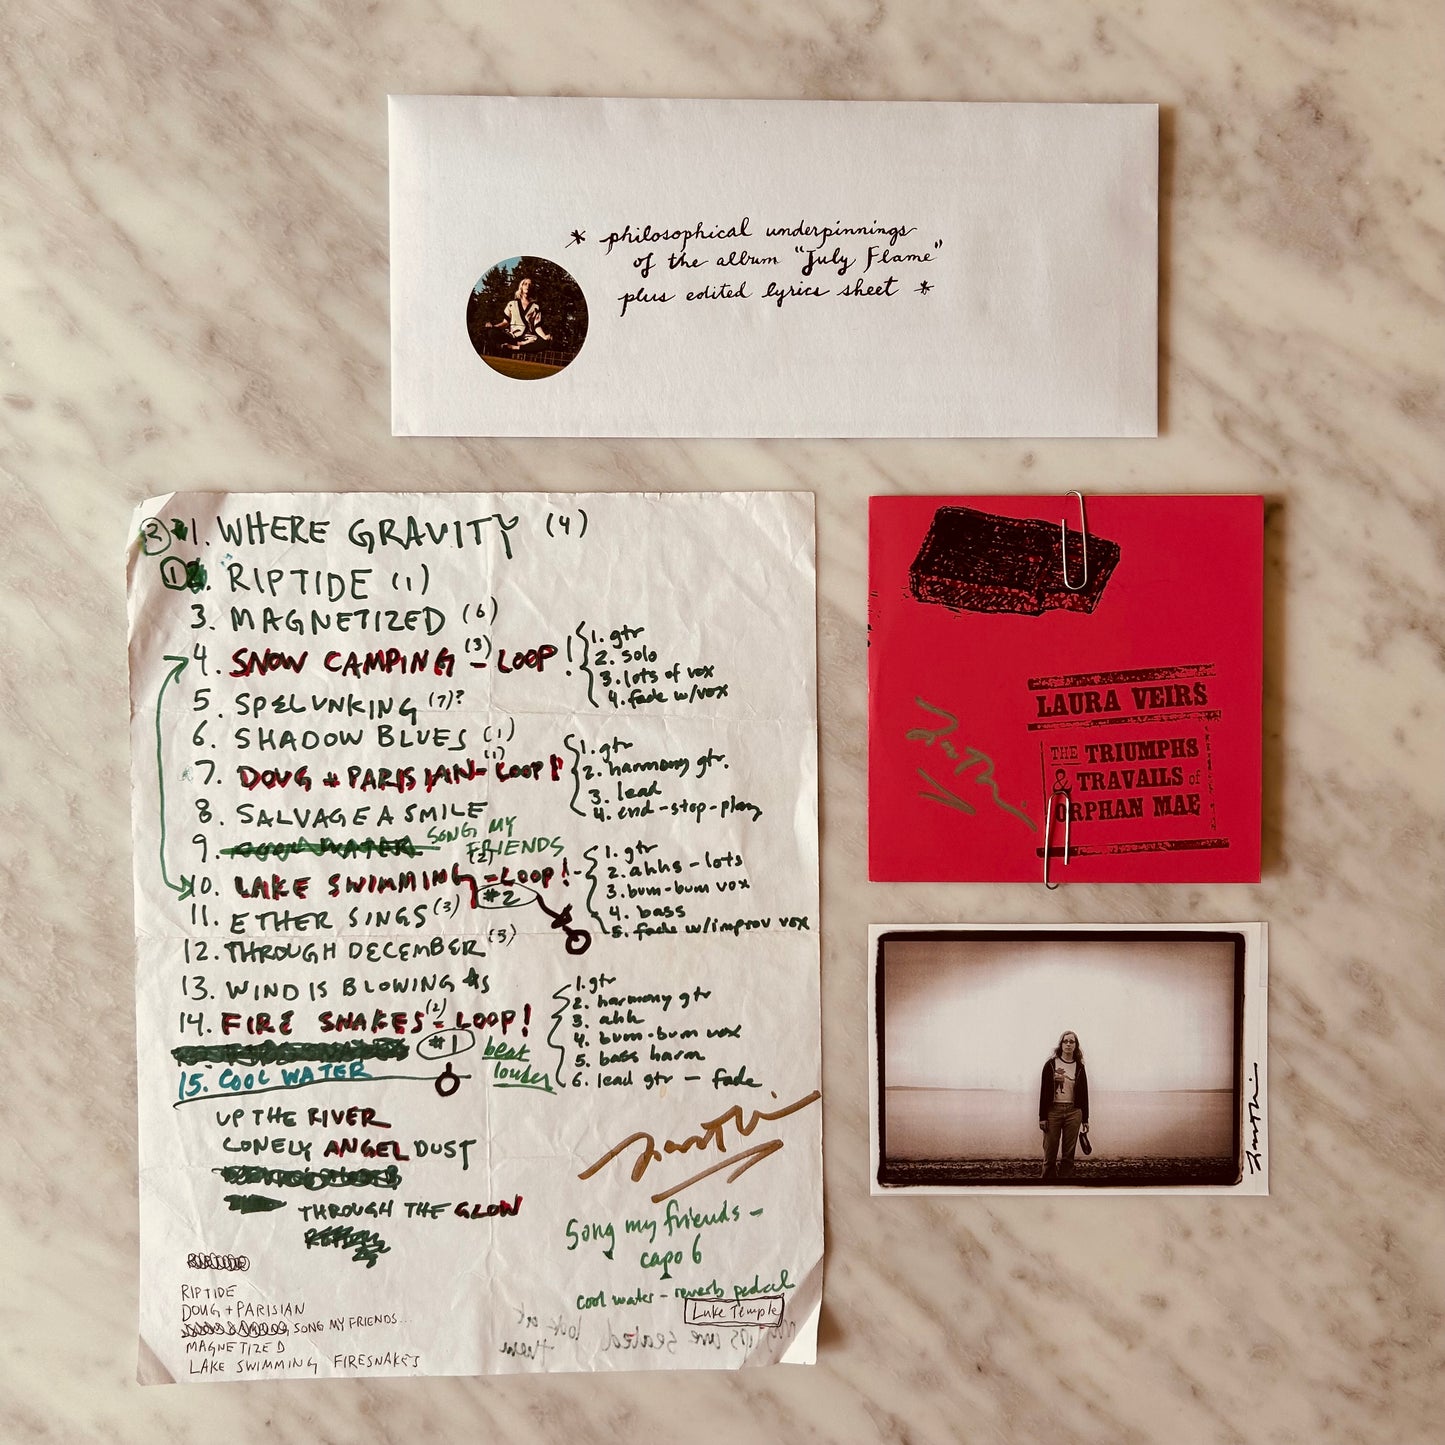 * philosophical underpinnings
of the album "July Flame"
plus edited lyrics sheet *
② 1. WHERE GRAVITY (4)
① 2. RIPTIDE (1)
3. MAGNETIZED (6)
4. SNOW CAMPING (3) - LOOP!
1. gtr
2. solo
3. lots of vox
4. fade w/vox
5. SPELUNKING (7)?
6. SHADOW BLUES (1)
7. DOUG + PARISIAN (1) - LOOP!
1. gtr
2. harmony gtr.
3. lead
4. end-stop-play
8. SALVAGE A SMILE
9. COOL WATER SONG MY
FRIENDS
10. LAKE SWIMMING (2) - LOOP! -
#2
1. gtr
2. ahhs - lots
3. bum-bum vox
4. bass
5. fade w/improv vox
11. ETHER SINGS (3)
12. THROUGH DECEMBER (3)
13. WIND IS BLOWING #s
14. FIRE SNAKES (2) - LOOP!
#1
beat
louder
1. gtr
2. harmony gtr
3. ahh
4. bum-bum vox
5. bass harm
6. lead gtr - fade
15. COOL WATER
UP THE RIVER
LONELY ANGEL DUST
THROUGH THE GLOW
Song my friends -
capo 6
cool water - reverb pedal
Luke Temple
RIPTIDE
DOUG + PARISIAN
SONG MY FRIENDS...
MAGNETIZED
LAKE SWIMMING FIRESNAKES
LAURA VEIRS
THE TRIUMPHS
& TRAVAILS of
ORPHAN MAE